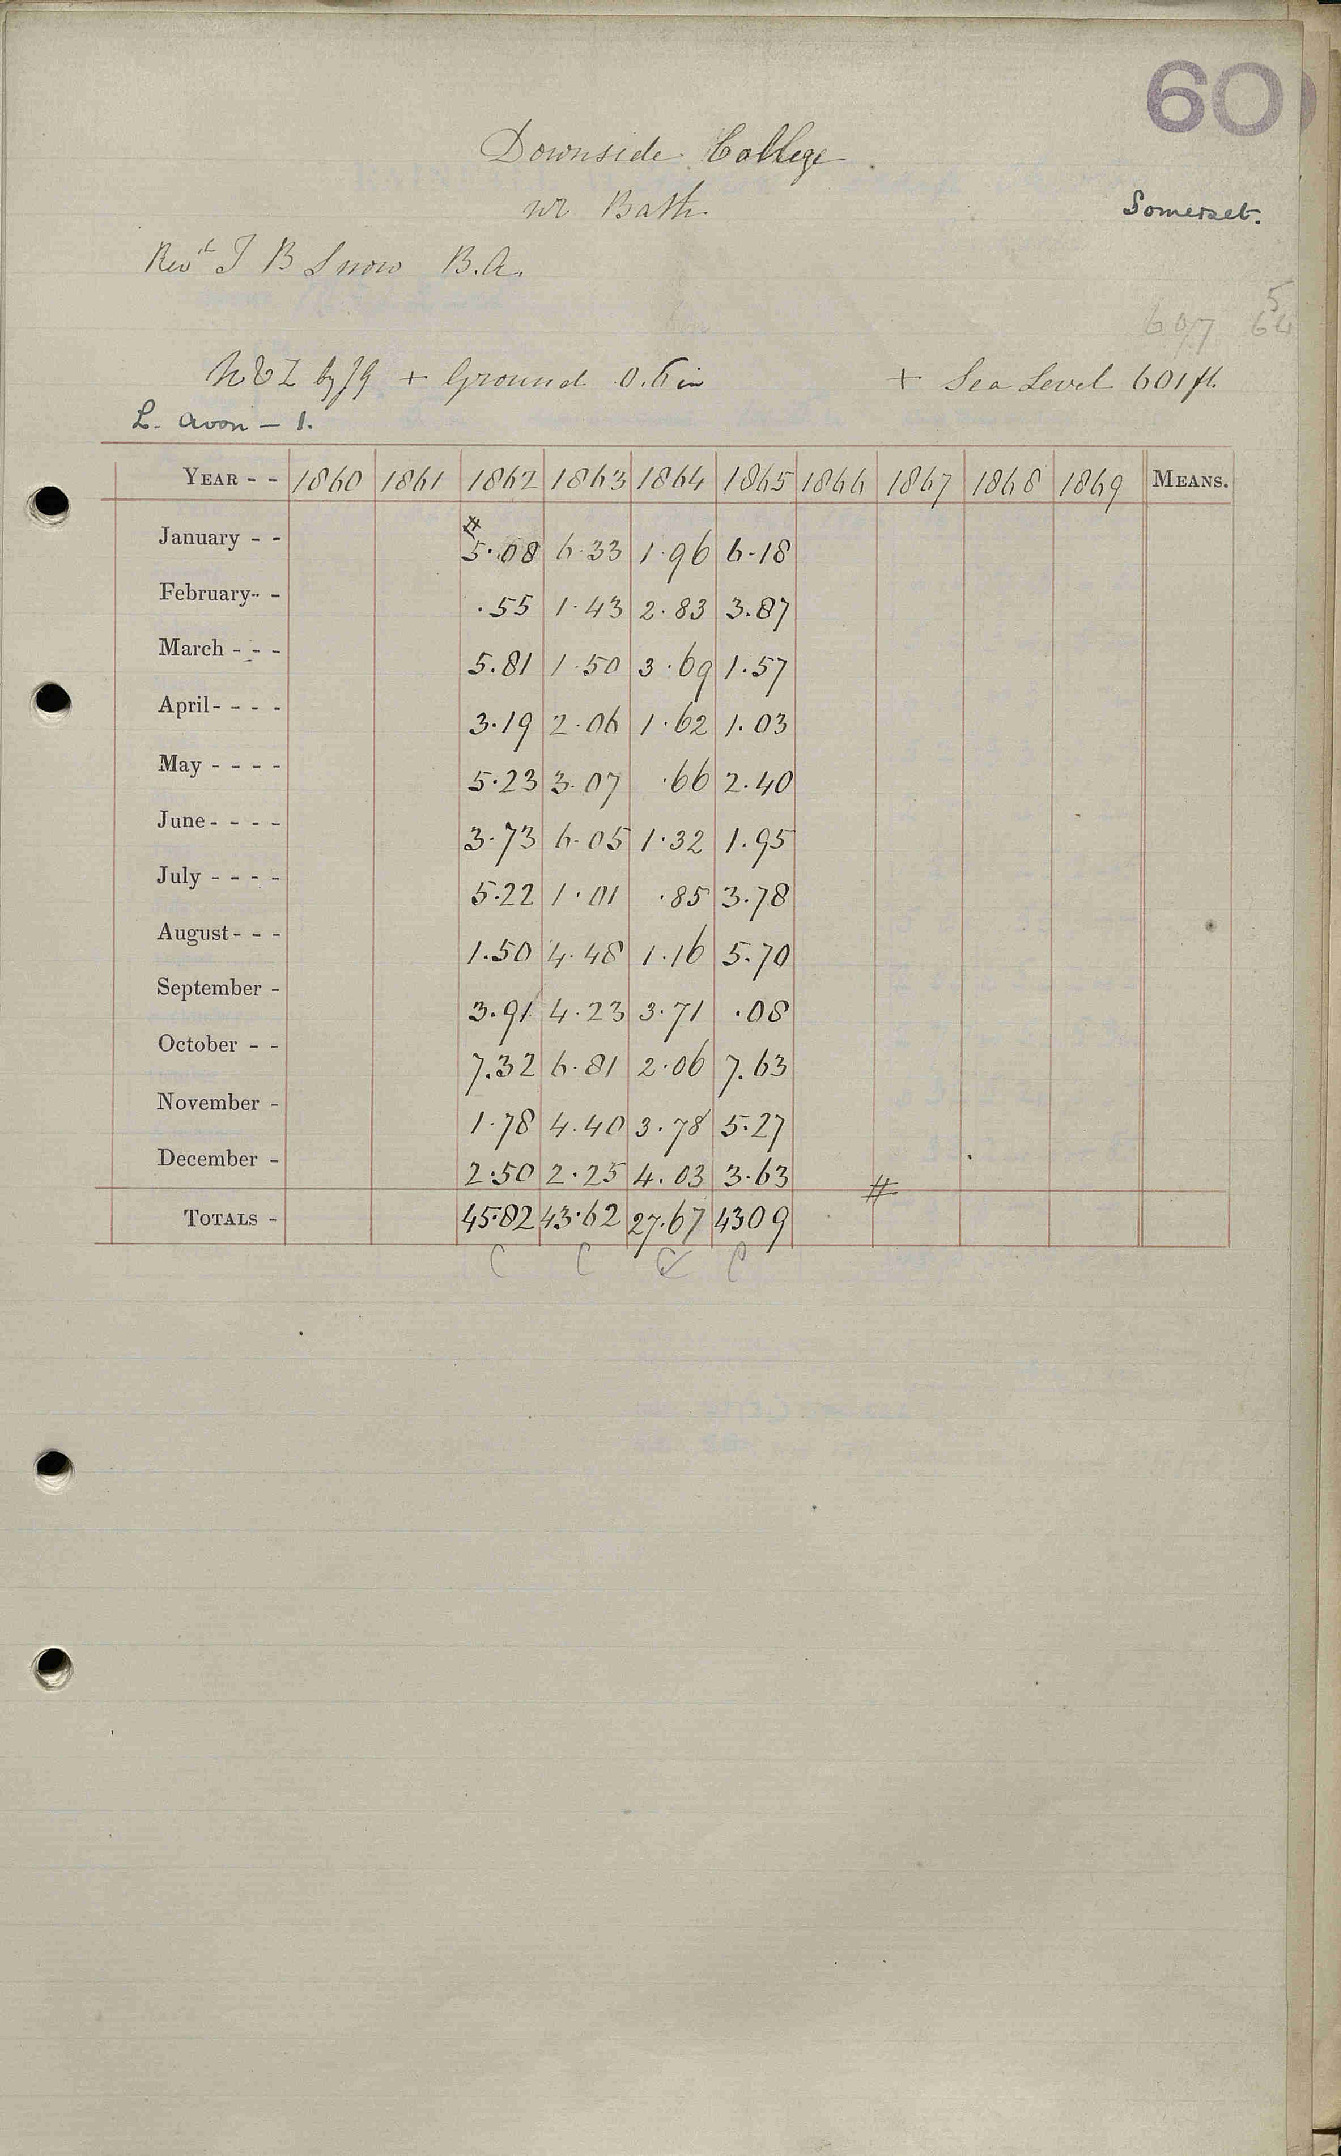 60
Downside College
nr Bath.
Somerset.
Revd T B Snow B.A.
5
607 64
N & Z by JG + Ground 0.6 in + Sea Level 601 ft.
L. Avon - 1.
YEAR - - 1860 1861 1862 1863 1864 1865 1866 1867 1868 1869 MEANS.
#
January - - 5.08 6.33 1.96 6.18
February - - .55 1.43 2.83 3.87
March - - - 5.81 1.50 3.69 1.57
April - - - - 3.19 2.06 1.62 1.03
May - - - - 5.23 3.07 .66 2.40
June - - - - 3.73 6.05 1.32 1.95
July - - - - 5.22 1.01 .85 3.78
August - - - 1.50 4.48 1.16 5.70
September - 3.91 4.23 3.71 .08
October - - 7.32 6.81 2.06 7.63
November - 1.78 4.40 3.78 5.27
December - 2.50 2.25 4.03 3.63
#
TOTALS - 45.82 43.62 27.67 4309
C C C C